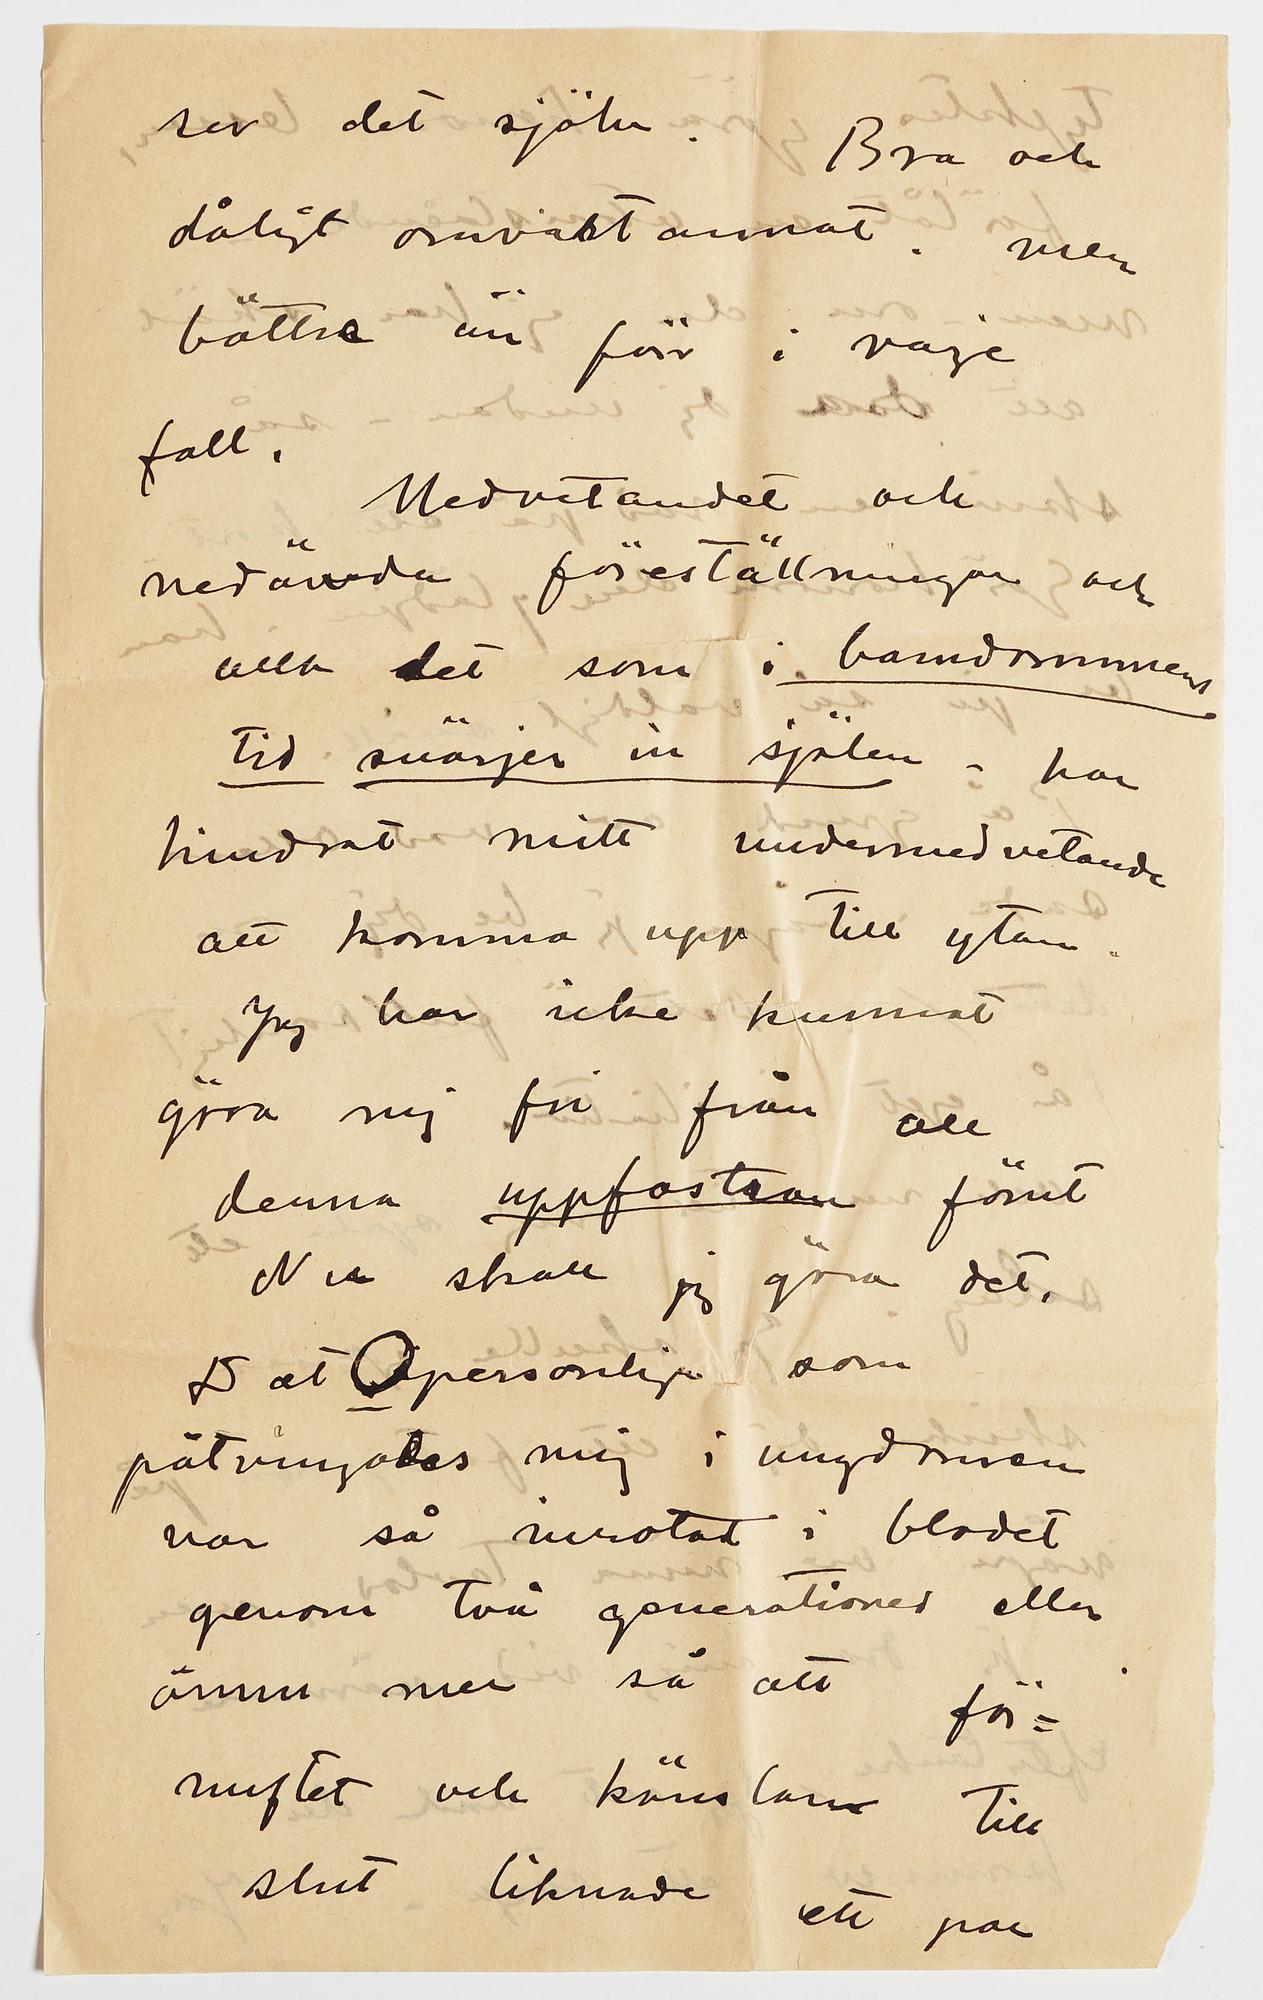 ser det själv. Bra och
dåligt omväxt annat. men
bättre än förr i varje
fall.
Medvetandet och
nedärvda föreställningar och
allt det som i barndommens
tid snärjer in själen - har
hindrat mitt undermedvetande
att komma upp till ytan.
Jag har icke kunnat
göra mig fri från all
denna uppfostran förut
Nu skall jag göra det.
Det Opersonliga som
påtvingades mig i ungdomen
var så inrotad i blodet
genom två generationer eller
ännu mer så att för=
nuftet och känslan till
slut liknade ett par